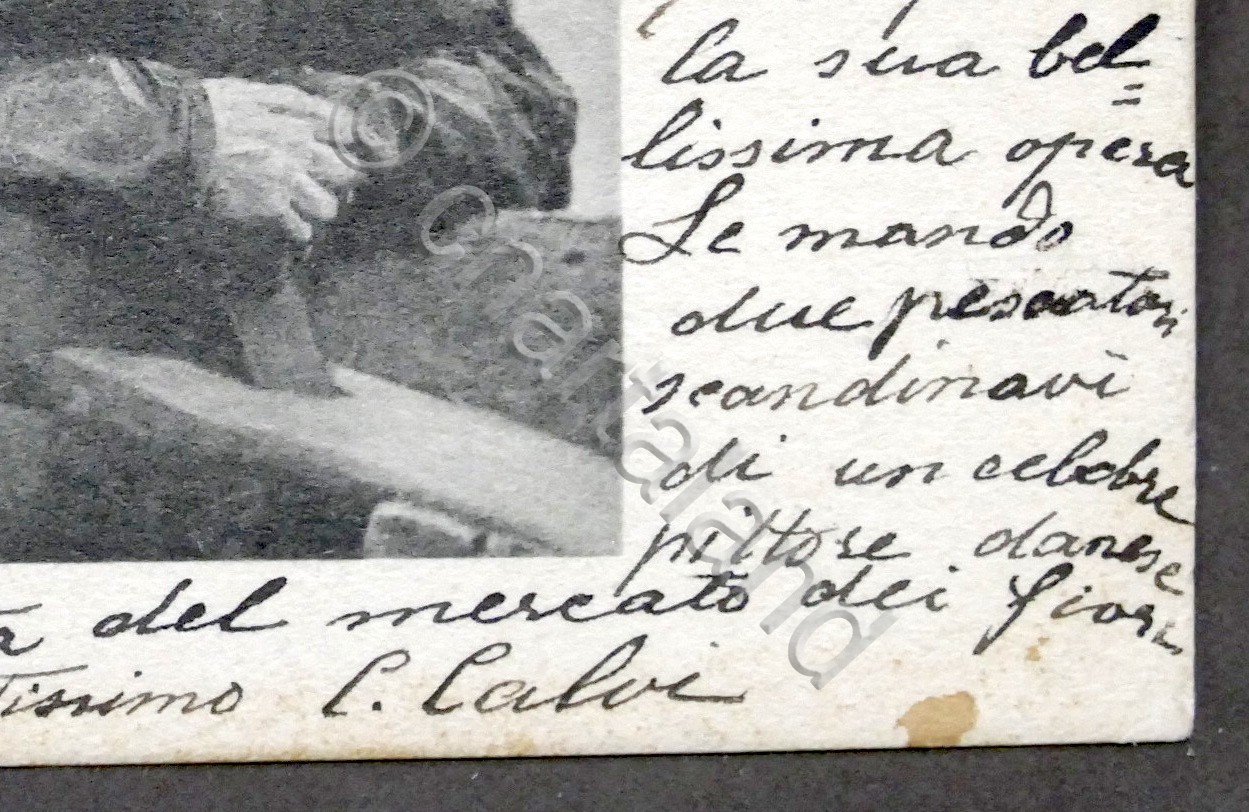 la sua bel=
lissima opera
Le mando
due pescatori
scandinavi
di un celebre
pittore danese
del mercato dei fiori
tissimo C. Calvi
© chartaland